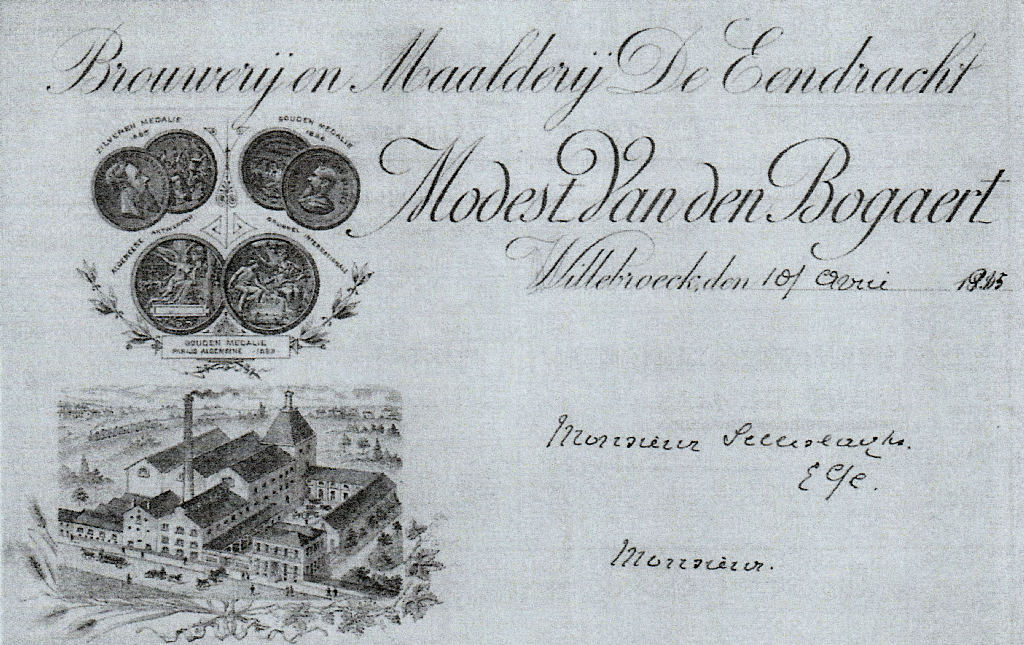 Brouwerij en Maalderij De Eendracht
ZILVEREN MEDALIE
1885
GOUDEN MEDALIE
Modest Van den Bogaert
ALGEMEENE ANTWERPEN
BRUSSEL INTERNATIONALE
Willebroeck, den 10/ Avril
GOUDEN MEDALIE
PARIJS ALGEMEENE 1889
Monsieur
Monsieur.